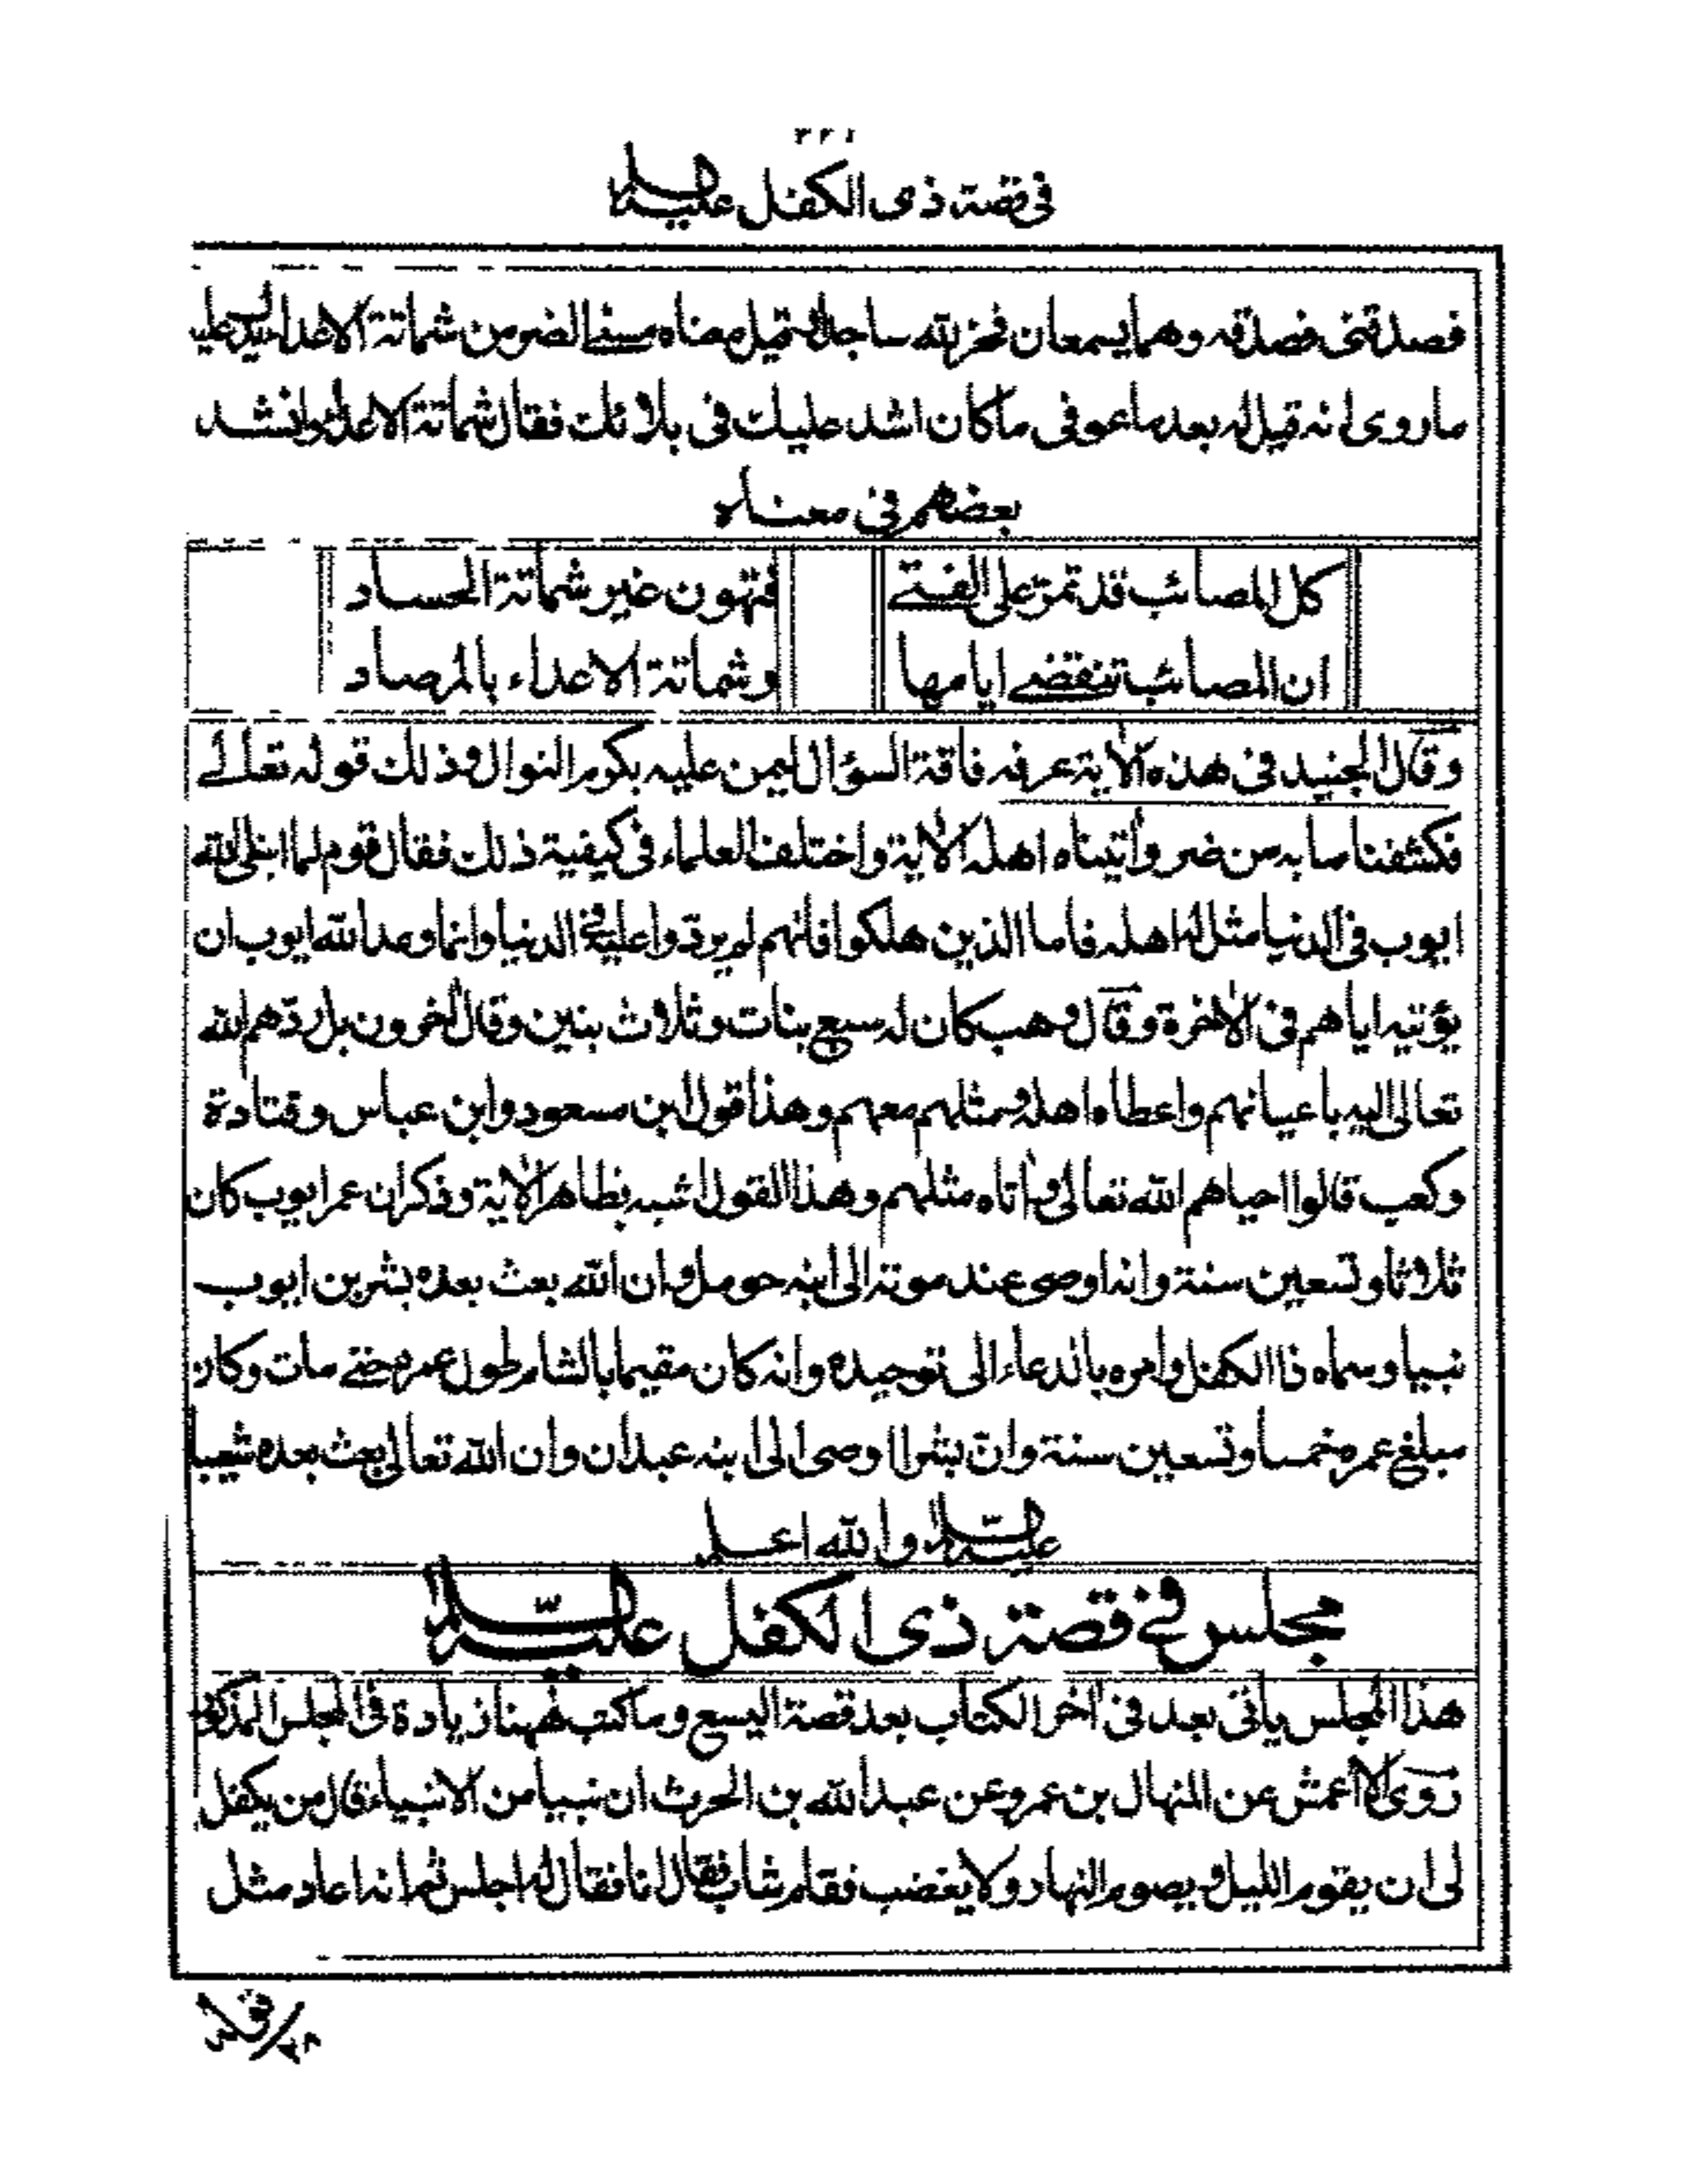 ٣٢١
في قصة ذى الكفل عليه السلام
فصدقنى فصدقه وهما يسمعان فخر لله ساجدا وقيل معناه مسنى الضر من شماتة الاعداء يدل عليه
ما روى انه قيل له بعد ما عوفى ما كان اشد عليك فى بلائك فقال شماتة الاعداء وانشد
بعضهم فى معناه
كل المصائب قد تمرّ على الفتى فتهون غير شماتة الحساد
ان المصائب تنقضى ايامها وشماتة الاعداء بالمرصاد
وقال الجنيد فى هذه الآية عرفه فاقة السؤال ليمن عليه بكرم النوال وذلك قوله تعالى
فكشفنا ما به من ضر وآتيناه اهله الآية واختلف العلماء فى كيفية ذلك فقال قوم لما ابتلى الله
ايوب فى الدنيا مثل له اهله فاما الذين هلكوا فانهم لم يردّوا عليه فى الدنيا وانما وعد الله ايوب ان
يؤتيه اياهم فى الآخرة وقال وهب كان له سبع بنات وثلاث بنين وقال آخرون بل ردّهم الله
تعالى اليه باعيانهم واعطاه اهله ومثلهم معهم وهذا قول ابن مسعود وابن عباس وقتادة
وكعب قالوا احياهم الله تعالى وآتاه مثلهم وهذا القول اشبه بظاهر الآية وذكر ان عمر ايوب كان
ثلاثا وتسعين سنة وانه اوصى عند موته الى ابنه حومل وان الله بعث بعده بشر بن ايوب
نبيا وسماه ذا الكفل وامره بالدعاء الى توحيده وانه كان مقيما بالشام طول عمره حتى مات وكان
مبلغ عمره خمسا وتسعين سنة وانّ بشرا اوصى الى ابنه عبدان وان الله تعالى بعث بعده شعيبا
عليه السلام والله اعلم
مجلس فى قصة ذى الكفل عليه السلام
هذا المجلس ياتى بعد فى آخر الكتاب بعد قصة اليسع وما كتب ههنا زيادة فى المجلس المذكور
روى الاعمش عن المنهال بن عمرو عن عبد الله بن الحرث ان نبيا من الانبياء قال من يكفل
لى ان يقوم الليل ويصوم النهار ولا يغضب فقام شاب فقال انا فقال له اجلس ثم انه اعاد مثل